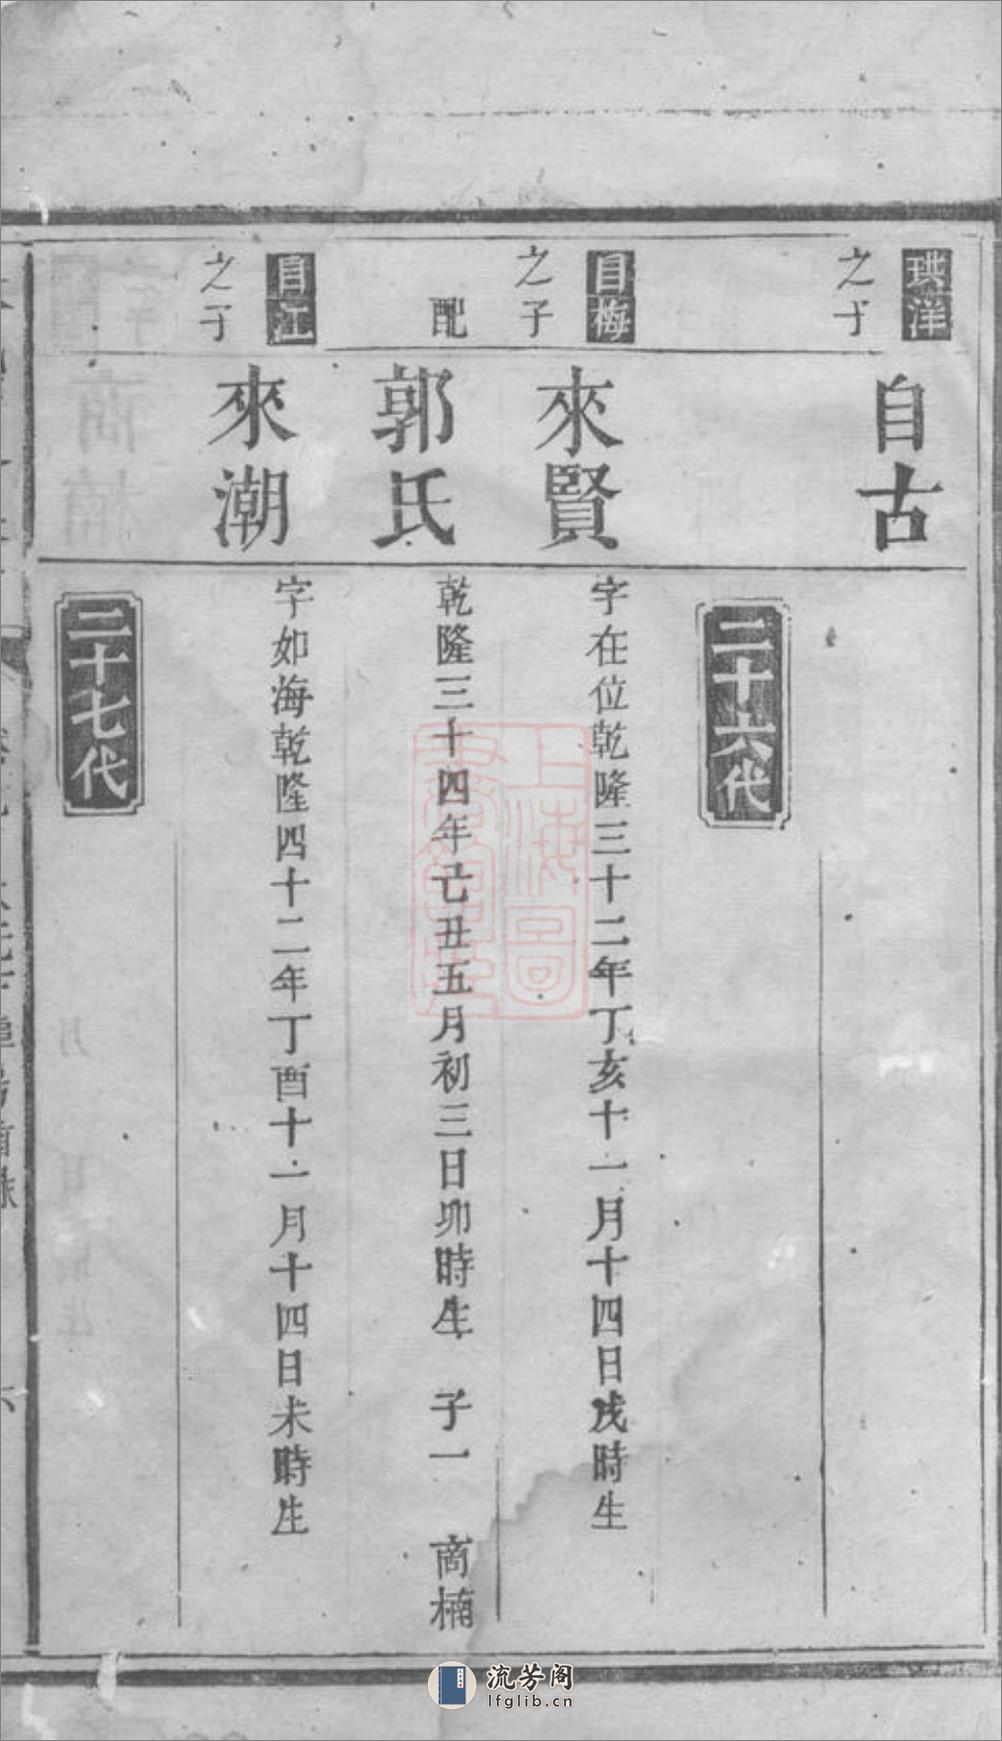 珙洋之子
自古
二十六代
自梅之子
來賢
字在位乾隆三十二年丁亥十一月十四日戌時生
配
郭氏
乾隆三十四年己丑五月初三日卯時生 子一 商楠
自江之子
來潮
字如海乾隆四十二年丁酉十一月十四日未時生
二十七代
六
上海圖
流芳阁
lfglib.cn